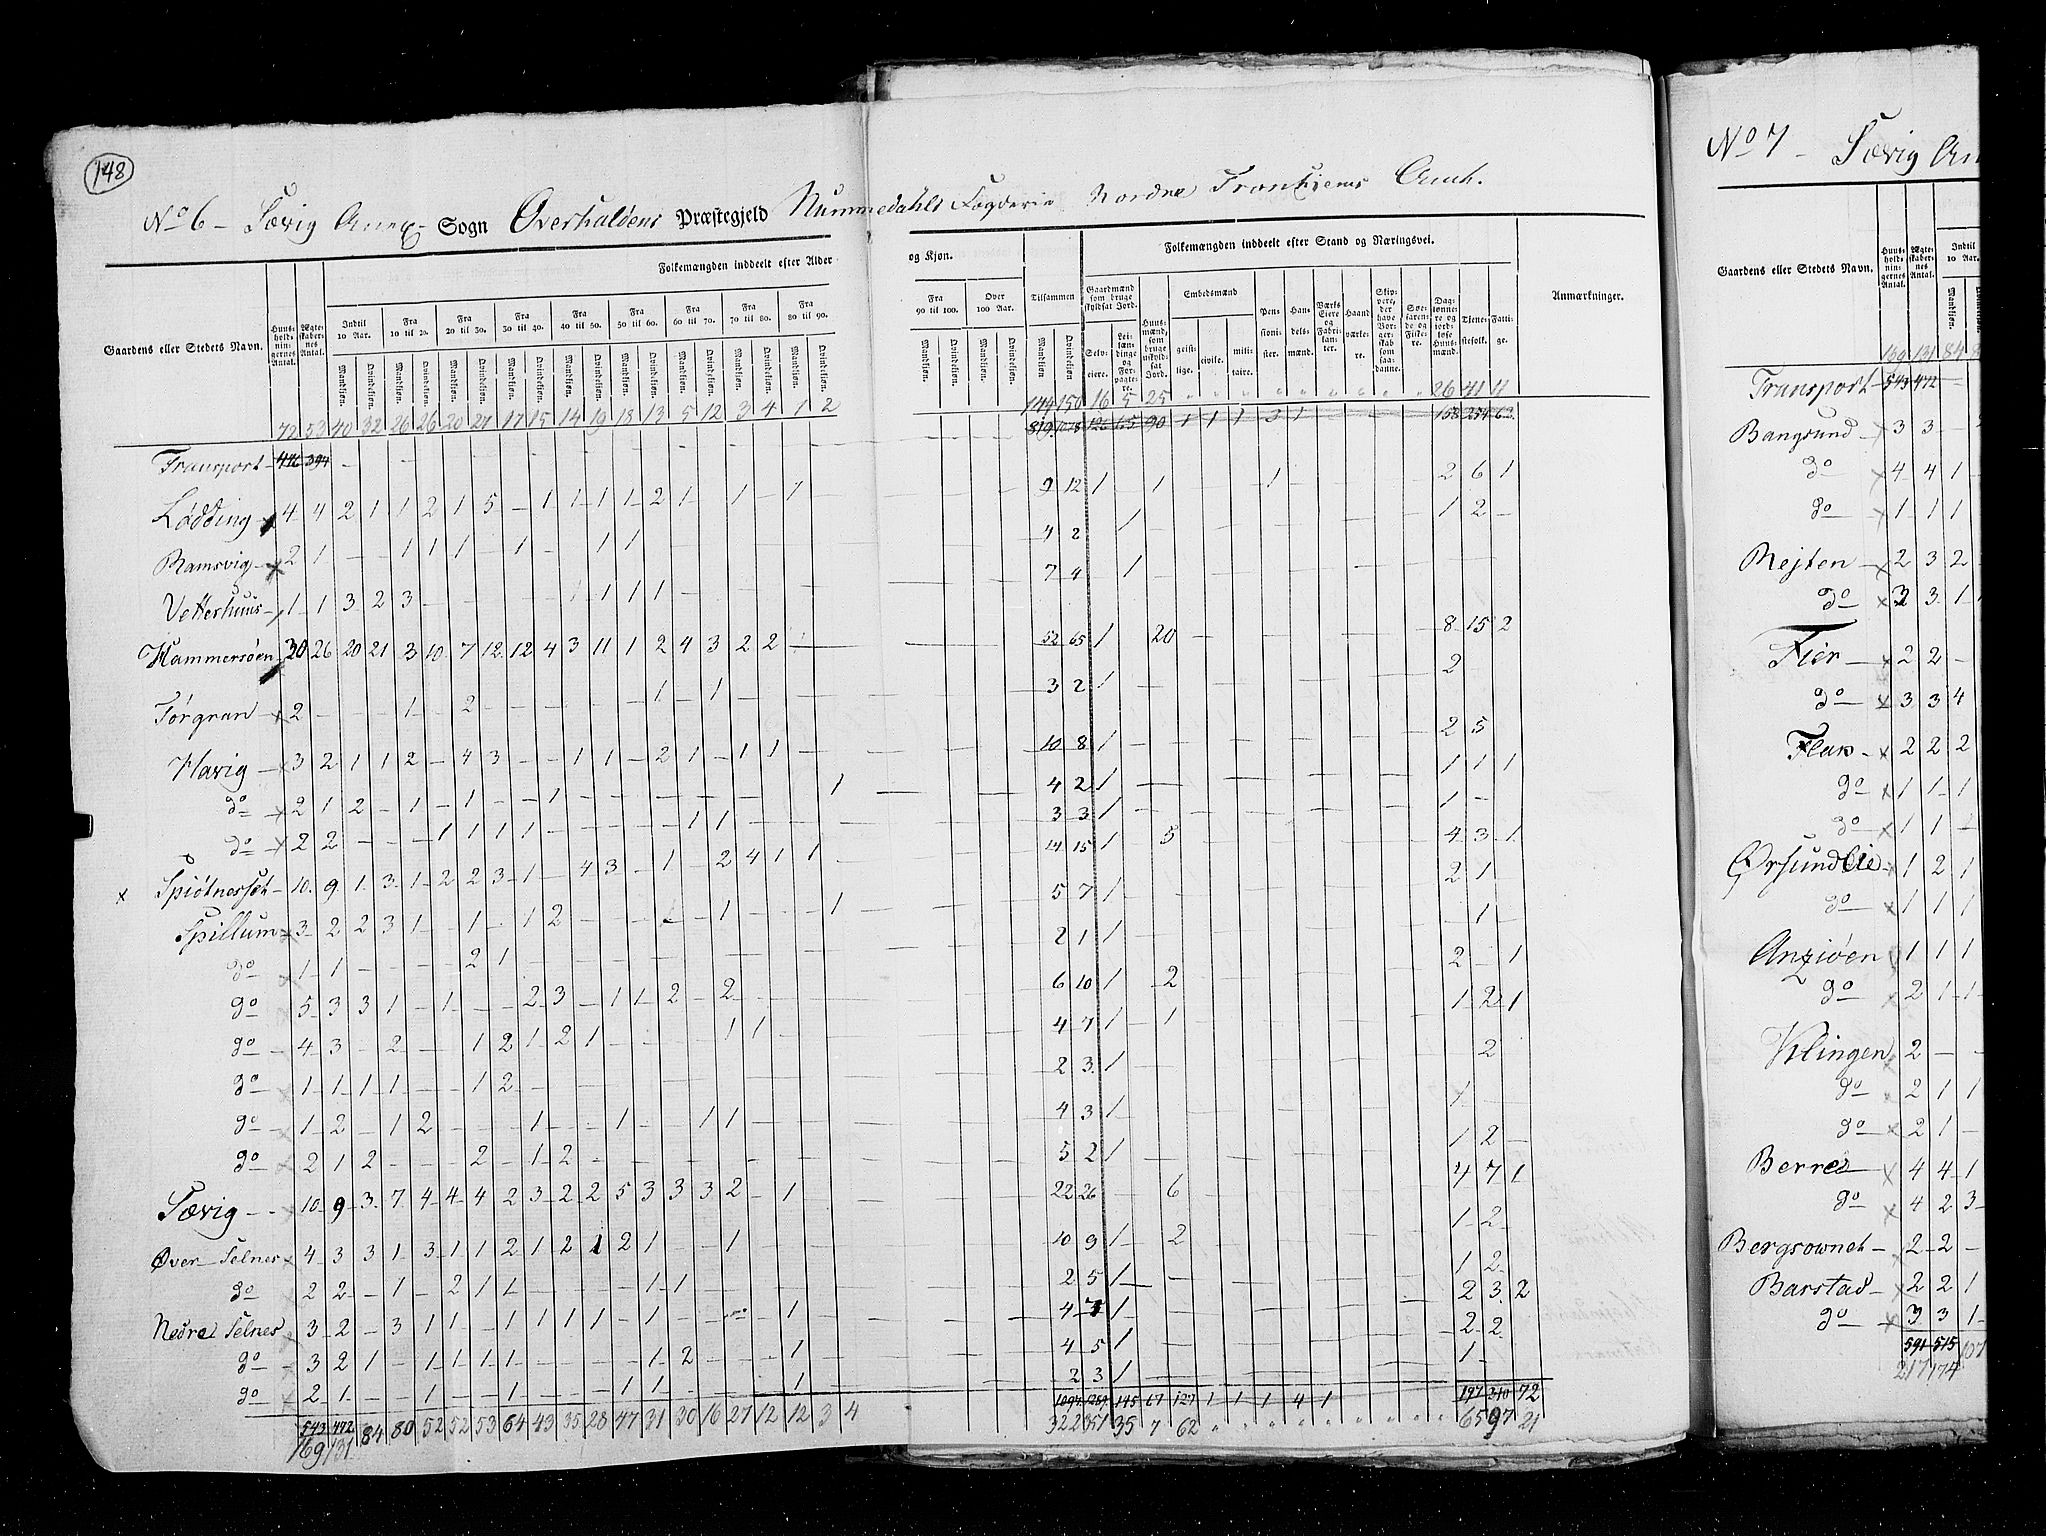 148
No 6 - Sævig Annex - Sogn Overhaldens Præstegjeld Nummedahls Fogderie Nordre Tronhiems Amt.
Gaardens eller Stedets Navn. Huusholdningernes Antal. Ægteskabernes Antal. Folkemængden inddeelt efter Alder og Kjøn. Tilsammen Folkemængden inddeelt efter Stand og Næringsvei. Anmærkninger.
Indtil 10 Aar. Fra 10 til 20. Fra 20 til 30. Fra 30 til 40. Fra 40 til 50. Fra 50 til 60. Fra 60 til 70. Fra 70 til 80. Fra 80 til 90. Fra 90 til 100. Over 100 Aar.
Mandkjøn. Qvindekjøn.
Gaardmænd som bruge skyldsat Jord. Selveiere. Leilændinge og Forpagtere. Huusmænd, som bruge uskyldsat Jord. Embedsmænd geistlige. civile. militaire. Pensionister. Handelsmænd. Værks Eiere og Fabrikanter. Haandværkere. Skippere, der have Borgerskab som saadanne. Søefarende og Fiskere. Daglønnere og jordløse Huusmænd. Tjenestefolk. Fattige.
72 53 40 32 26 26 20 27 17 15 14 19 18 13 5 12 3 4 1 2 144 150 16 5 25 26 41 11
Transport 446 394 819 1018 126 65 90 1 1 1 3 1 158 254 62
Lødding 4 4 2 1 1 2 1 5 - 1 1 1 1 2 1 - 1 - 1 9 12 1 - 1 1 2 6 1
Ramsvig 2 1 - - 1 1 1 - 1 - - 1 1 4 2 1 1 2
Vetterhuus 1 1 3 2 3 - - - - - 1 - 1 1 1 7 4 1
Hammersøen 30 26 20 21 3 10 7 12 12 4 3 11 1 2 4 3 2 2 52 65 1 20 8 15 2
Førgran 2 - - - 1 - 2 - - - - - - 1 - 1 3 2 1 2
Havig 3 2 1 1 2 - 4 3 - - 1 1 - 2 1 - 1 1 10 8 1 2 5
do 2 1 2 - 1 - 1 - - 1 1 4 2 1 1 1 1
do 2 2 - - - 1 1 1 1 - - - - - 1 1 3 3 1 1
Spiøtnesset 10 9 1 3 1 2 2 3 1 - 4 3 - 1 - 2 4 1 1 14 15 1 5 4 3 1
Spillum 3 2 2 3 1 - 1 - 1 2 1 1 5 7 1 2 1
do 1 1 - - - - 2 1 2 1 1 1
do 5 3 3 1 - 1 - - 2 3 - 1 1 2 - 2 6 10 1 2 2 1
do 4 3 - 2 - - 1 2 1 2 1 - - - - 1 1 4 7 1 1 1 2 1
do 1 1 1 1 - - 1 2 2 3 1 2
do 1 2 - 1 2 - - - 1 - - 1 - - 1 1 4 3 1 1
do 2 1 2 - - - 2 - 1 2 5 2 1 1 2
Sævig 10 9 3 7 4 4 4 2 3 2 2 5 3 3 3 2 - 1 22 26 6 4 7 1
Øver Selnes 4 3 3 1 3 1 1 2 1 2 1 2 1 - - 1 10 9 1 2 1 2
do 2 2 - 1 - 2 1 1 - - - - 1 1 2 5 1 1 2
Nedre Selnes 3 2 - 3 1 1 - 1 1 1 1 - 1 - - - - 1 4 7 1 2 3 2
do 3 2 1 - 1 1 1 1 - - - - 1 2 - - - 1 4 5 1 2 2
do 2 1 - - 1 - - 1 - - - 1 1 - - - - 1 2 3 1 1
543 472 1094 1259 145 67 127 1 1 1 4 1 197 310 72
169 131 84 80 52 52 53 64 43 35 28 47 31 30 16 27 12 12 3 4 322 351 35 7 62 65 97 21
No 7 - Sævig An
Gaardens eller Stedets Navn. Huusholdningernes Antal. Ægteskabernes Antal. Indtil 10 Aar. Mandkjøn.
169 131 84
Transport 543 472
Bangsund 3 3 -
do 4 4 1
do 1 1 1
Rejten 2 3 2
do 3 3 1
Fier 2 2 -
do 3 3 4
Flak 2 2 2
do 1 1 1
do 1 1 -
Ørsundlie 1 2 1
do 1 1 1
Anziøen 1 1 1
do 2 1 1
Klingen 2 - -
do 2 1 1
do 2 1 -
Berre 4 4 1
do 4 2 3
Bergsownet 2 2 -
Barstad 2 2 1
do 3 3 1
591 515 107
217 174